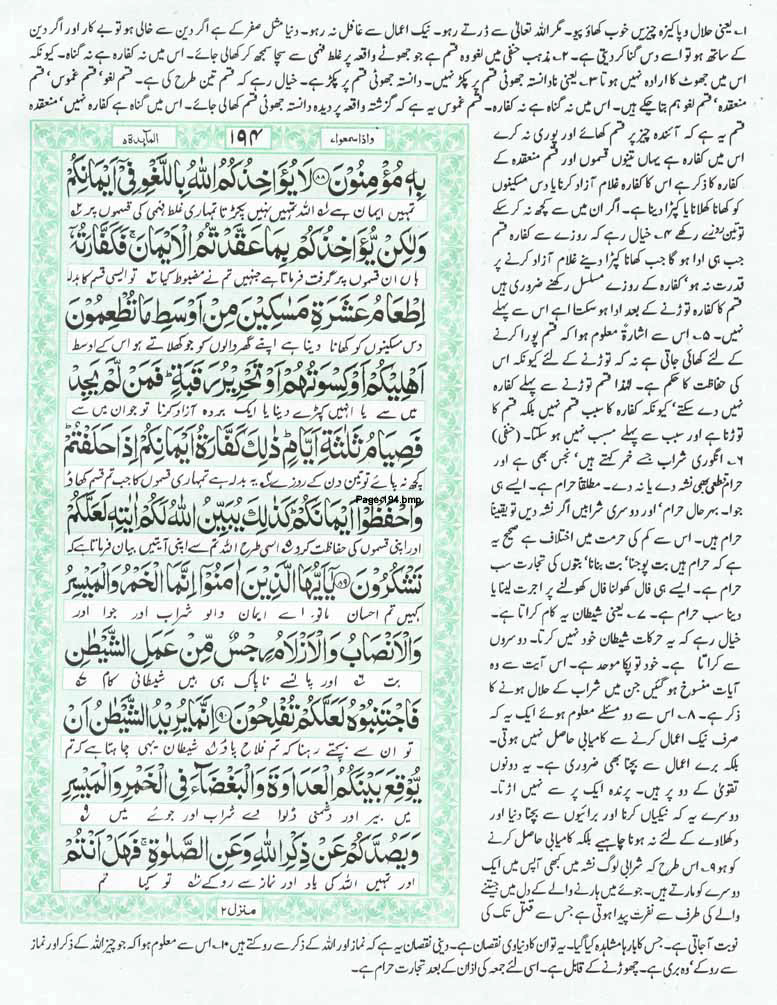 ۱۔ یعنی حلال و پاکیزہ چیزیں خوب کھاؤ پیو۔ مگر اللہ تعالیٰ سے ڈرتے رہو۔ نیک اعمال سے غافل نہ رہو۔ دنیا مثل صفر کے ہے اگر دین سے خالی ہو تو بے کار اور اگر دین
کے ساتھ ہو تو اسے دس گنا کر دیتی ہے۔ ۲۔ مذہب حنفی میں لغو وہ قسم ہے جو جھوٹے واقعہ پر غلط فہمی سے سچا سمجھ کر کھالی جائے۔ اس میں نہ کفارہ ہے نہ گناہ۔ کیونکہ
اس میں جھوٹ کا ارادہ نہیں ہوتا ۳۔ یعنی نادانستہ جھوٹی قسم پر پکڑ نہیں۔ دانستہ جھوٹی قسم پر پکڑ ہے۔ خیال رہے کہ قسم تین طرح کی ہے۔ قسم لغو، قسم غموس، قسم
منعقدہ، قسم لغو ہم بتا چکے ہیں۔ اس میں نہ گناہ ہے نہ کفارہ۔ قسم غموس یہ ہے کہ گزشتہ واقعہ پر دیدہ دانستہ جھوٹی قسم کھالی جائے۔ اس میں گناہ ہے کفارہ نہیں، منعقدہ
قسم یہ ہے کہ آئندہ چیز پر قسم کھائے اور پوری نہ کرے
اس میں کفارہ ہے یہاں تینوں قسموں اور قسم منعقدہ کے
کفارہ کا ذکر ہے اس کا کفارہ غلام آزاد کرنا یا دس مسکینوں
کو کھانا کھلانا یا کپڑا دینا ہے۔ اگر ان میں سے کچھ نہ کر سکے
تو تین روزے رکھے ۴۔ خیال رہے کہ روزے سے کفارہ قسم
جب ہی ادا ہو گا جب کھانا کپڑا دینے غلام آزاد کرنے پر
قدرت نہ ہو، کفارہ کے روزے مسلسل رکھنے ضروری ہیں
قسم کا کفارہ توڑنے کے بعد ادا ہو سکتا ہے اس سے پہلے
نہیں۔ ۵۔ اس سے اشارۃً معلوم ہوا کہ قسم پورا کرنے
کے لئے کھائی جاتی ہے نہ کہ توڑنے کے لئے کیونکہ اس
کی حفاظت کا حکم ہے۔ لہٰذا قسم توڑنے سے پہلے کفارہ
نہیں دے سکتے، کیونکہ کفارہ کا سبب قسم نہیں بلکہ قسم کا
توڑنا ہے اور سبب سے پہلے مسبب نہیں ہو سکتا۔ (حنفی)
۶۔ انگوری شراب جسے خمر کہتے ہیں، نجس بھی ہے اور
حرام قطعی بھی نشہ دے یا نہ دے۔ مطلقاً حرام ہے۔ ایسے ہی
جوا۔ بہر حال حرام، اور دوسری شرابیں اگر نشہ دیں تو یقیناً
حرام ہیں۔ اس سے کم کی حرمت میں اختلاف ہے صحیح یہ
ہے کہ حرام ہیں بت پوجنا، بت بنانا، بتوں کی تجارت سب
حرام ہے۔ ایسے ہی فال کھولنا فال کھولنے پر اجرت لینا یا
دینا سب حرام ہے۔ ۷۔ یعنی شیطان یہ کام کراتا ہے۔
خیال رہے کہ یہ حرکات شیطان خود نہیں کرتا۔ دوسروں
سے کراتا ہے۔ خود تو پکا موحد ہے۔ اس آیت سے وہ
آیات منسوخ ہو گئیں جن میں شراب کے حلال ہونے کا
ذکر ہے۔ ۸۔ اس سے دو مسئلے معلوم ہوئے ایک یہ کہ
صرف نیک اعمال کرنے سے کامیابی حاصل نہیں ہوتی۔
بلکہ برے اعمال سے بچنا بھی ضروری ہے۔ یہ دونوں
تقویٰ کے دو پر ہیں۔ پرندہ ایک پر سے نہیں اڑتا۔
دوسرے یہ کہ نیکیاں کرنا اور برائیوں سے بچنا دنیا اور
دکھلاوے کے لئے نہ ہونا چاہیے بلکہ کامیابی حاصل کرنے
کو ہو ۹۔ اس طرح کہ شرابی لوگ نشہ میں کبھی آپس میں ایک
دوسرے کو مارتے ہیں۔ جوئے میں ہارنے والے کے دل میں جیتنے
والے کی طرف سے نفرت پیدا ہوتی ہے جس سے قتل تک کی
المآئدة ۵
۱۹۴
واذا سمعوا ۷
بِهٖ مُؤْمِنُوْنَ ۸۸ لَا یُؤَاخِذُكُمُ اللّٰهُ بِاللَّغْوِ فِیْۤ اَیْمَانِكُمْ
تمہیں ایمان ہے ۱ اللہ تمہیں نہیں پکڑتا تمہاری غلط فہمی کی قسموں پر ۲
وَلٰكِنْ یُّؤَاخِذُكُمْ بِمَا عَقَّدْتُّمُ الْاَیْمَانَ ۚ فَكَفَّارَتُهٗۤ
ہاں ان قسموں پر گرفت فرماتا ہے جنہیں تم نے مضبوط کیا ۳ تو ایسی قسم کا بدلہ
اِطْعَامُ عَشَرَةِ مَسٰكِیْنَ مِنْ اَوْسَطِ مَا تُطْعِمُوْنَ
دس مسکینوں کو کھانا دینا ہے اپنے گھر والوں کو جو کھلاتے ہو اس کے اوسط
اَهْلِیْكُمْ اَوْ كِسْوَتُهُمْ اَوْ تَحْرِیْرُ رَقَبَةٍ ؕ فَمَنْ لَّمْ یَجِدْ
میں سے یا انہیں کپڑے دینا یا ایک بردہ آزاد کرنا تو جو ان میں سے
فَصِیَامُ ثَلٰثَةِ اَیَّامٍ ؕ ذٰلِكَ كَفَّارَةُ اَیْمَانِكُمْ اِذَا حَلَفْتُمْ ؕ
کچھ نہ پائے تو تین دن کے روزے ۴ یہ بدلہ ہے تمہاری قسموں کا جب تم قسم کھاؤ
Page-194.bmp
وَاحْفَظُوْۤا اَیْمَانَكُمْ ؕ كَذٰلِكَ یُبَیِّنُ اللّٰهُ لَكُمْ اٰیٰتِهٖ لَعَلَّكُمْ
اور اپنی قسموں کی حفاظت کرو ۵ اسی طرح اللہ تم سے اپنی آیتیں بیان فرماتا ہے کہ
تَشْكُرُوْنَ ۸۹ یٰۤاَیُّهَا الَّذِیْنَ اٰمَنُوْۤا اِنَّمَا الْخَمْرُ وَالْمَیْسِرُ
کہیں تم احسان مانو اے ایمان والو شراب اور جوا اور
وَالْاَنْصَابُ وَالْاَزْلَامُ رِجْسٌ مِّنْ عَمَلِ الشَّیْطٰنِ
بت ۶ اور پانسے ناپاک ہی ہیں شیطانی کام ۷
فَاجْتَنِبُوْهُ لَعَلَّكُمْ تُفْلِحُوْنَ ۹۰ اِنَّمَا یُرِیْدُ الشَّیْطٰنُ اَنْ
تو ان سے بچتے رہنا کہ تم فلاح پاؤ ۸ شیطان یہی چاہتا ہے کہ تم
یُّوْقِعَ بَیْنَكُمُ الْعَدَاوَةَ وَالْبَغْضَآءَ فِی الْخَمْرِ وَالْمَیْسِرِ
میں بیر اور دشمنی ڈلوا دے شراب اور جوئے میں ۹
وَیَصُدَّكُمْ عَنْ ذِكْرِ اللّٰهِ وَعَنِ الصَّلٰوةِ ۚ فَهَلْ اَنْتُمْ
اور تمہیں اللہ کی یاد اور نماز سے روکے ۱۰ تو کیا تم
منزل ۲
نوبت آ جاتی ہے۔ جس کا بارہا مشاہدہ کیا گیا۔ یہ تو ان کا دنیاوی نقصان ہے۔ دینی نقصان یہ ہے کہ نماز اور اللہ کے ذکر سے روکتے ہیں ۱۰۔ اس سے معلوم ہوا کہ جو چیز اللہ کے ذکر اور نماز
سے روکے، وہ بری ہے۔ چھوڑنے کے قابل ہے۔ اسی لئے جمعہ کی اذان کے بعد تجارت حرام ہے۔